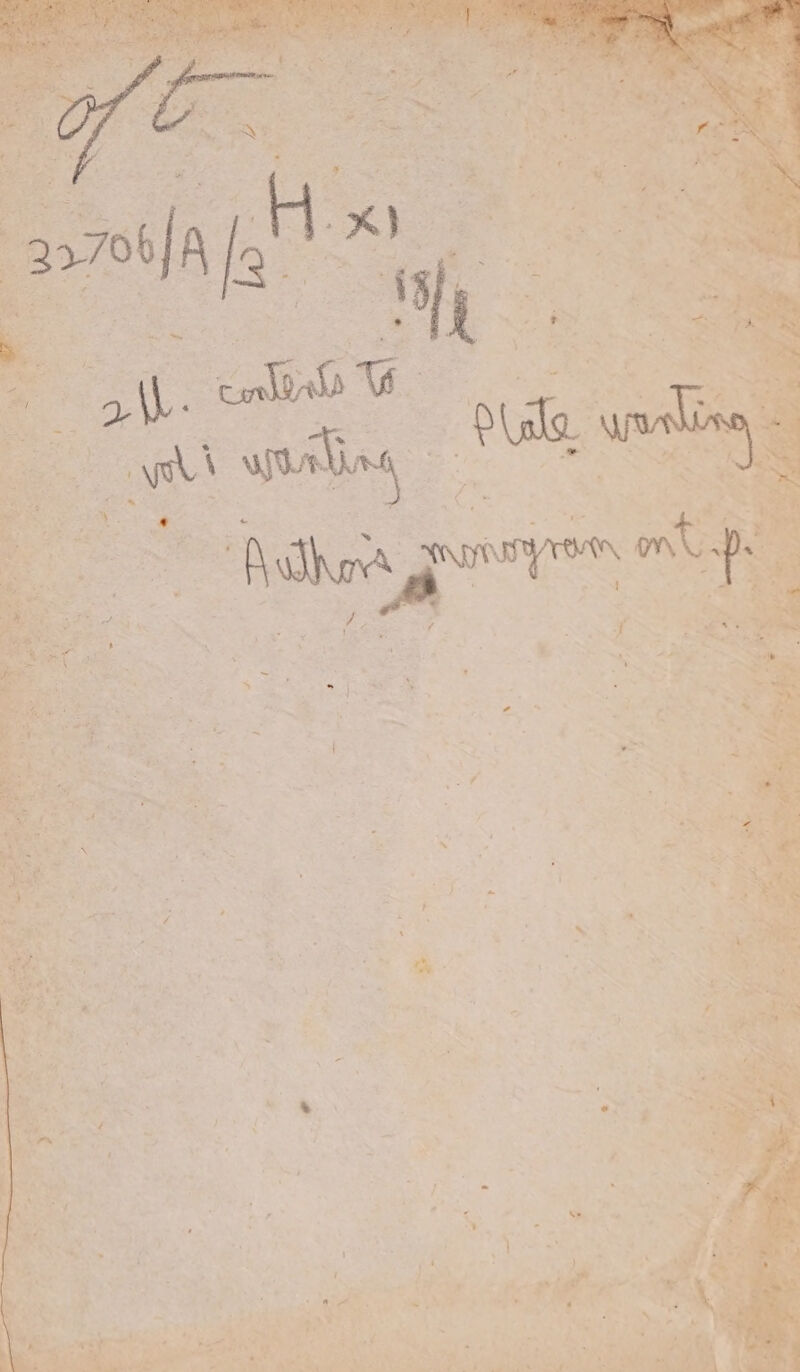 oft
32706/A/3 H.xi
18/
2ll. contents to
vol i wanting
Plate wanting.
Author's monogram on t.p.